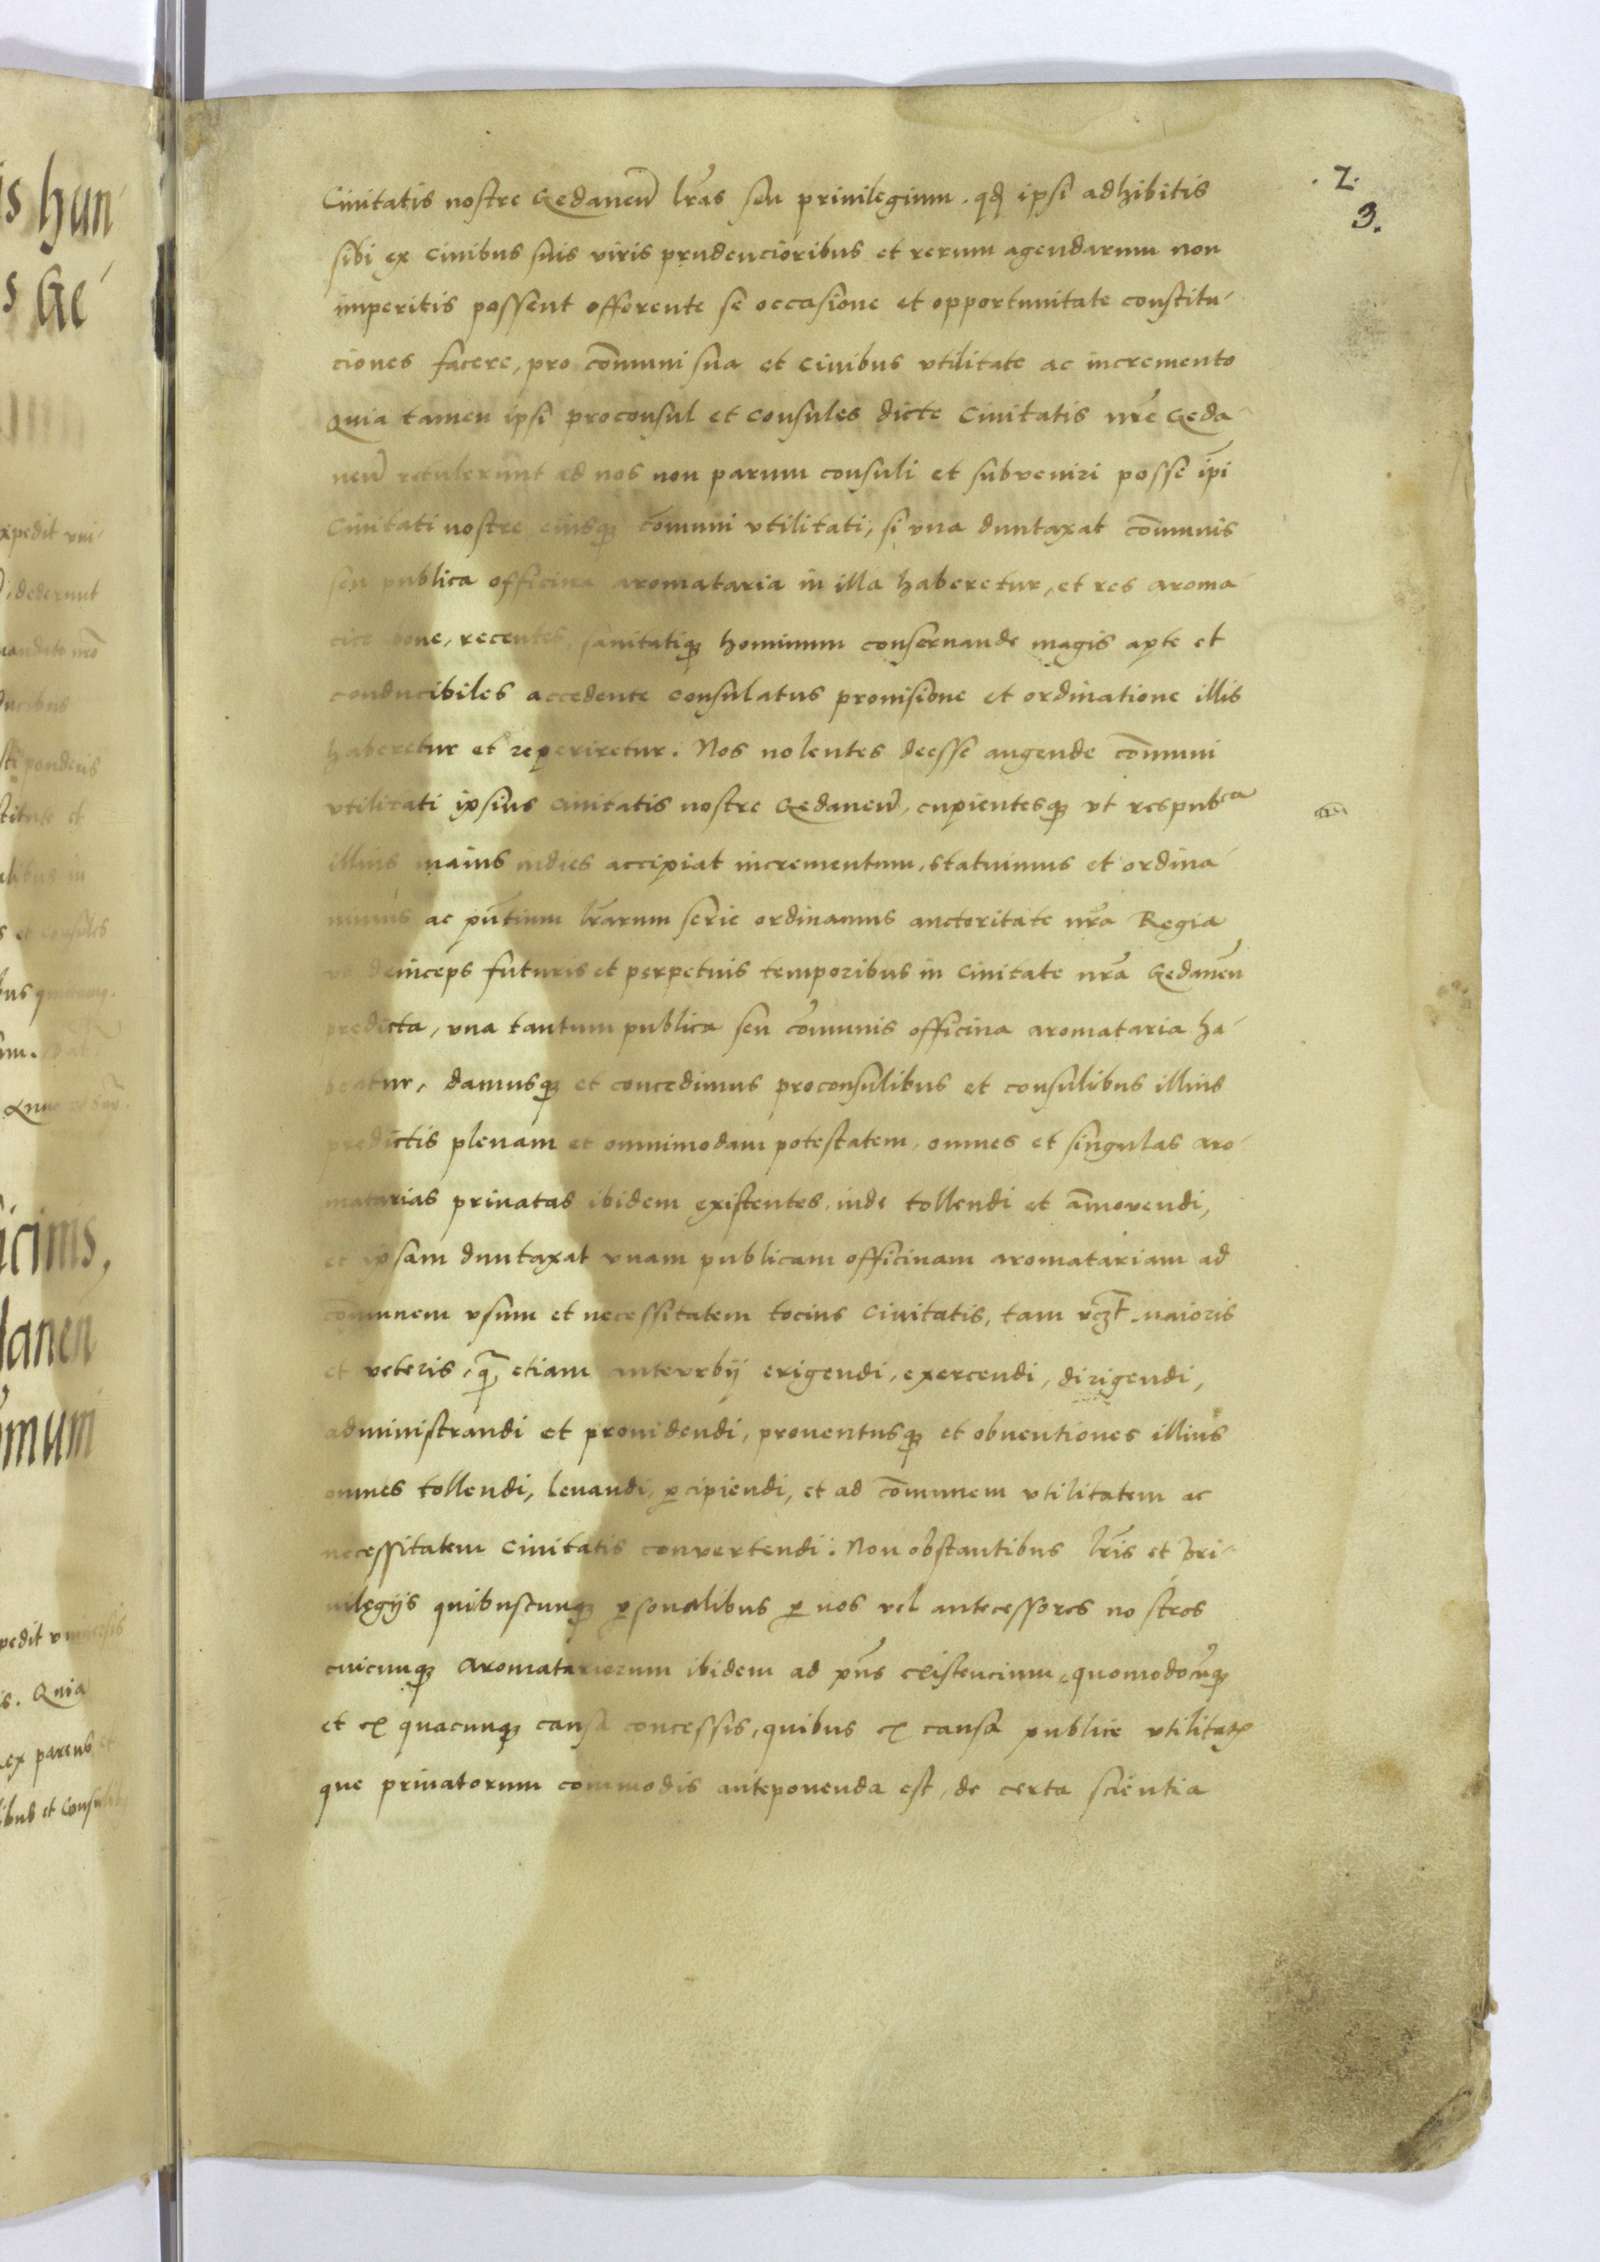 . 2.
3.
Ciuitatis nostre Gedanen̄ lr̄as seu priuilegium . qd̄ ipsi adhibitis
sibi ex Ciuibus suis viris prudencioribus et rerum agendarum non
imperitis possent offerente se occasione et opportunitate constitu-
ciones facere, pro com̄uni sua et Ciuibus vtilitate ac incremento
Quia tamen ipsi proconsul et Consules dicte Ciuitatis nr̄e Geda-
nen̄ retulerunt ad nos non parum consuli et subveniri posse ip̄i
Ciuitati nostre eiusqꝫ com̄uni vtilitati, si vna duntaxat com̄unis
seu publica officina aromataria in illa haberetur, et res aroma-
tice bone, recentes, sanitatiqꝫ hominum conseruande magis apte et
conducibiles accedente Consulatus prouisione et ordinatione illis
haberetur et reperiretur. Nos nolentes deesse augende com̄uni
vtilitati ipsius Ciuitatis nostre Gedanen̄, cupientesqꝫ vt respubca
illius maius indies accipiat incrementum, statuimus et ordina-
uimus ac pn̄tium lr̄arum serie ordinamus auctoritate nr̄a Regia
vt deinceps futuris et perpetuis temporibus in Ciuitate nr̄a Gedanen̄
predicta, vna tantum publica seu com̄unis officina aromataria ha-
beatur, damusqꝫ et concedimus proconsulibus et consulibus illius
predictis plenam et omnimodam potestatem, omnes et singulas aro-
matarias priuatas ibidem existentes, inde tollendi et am̄ovendi,
et ipsam duntaxat vnam publicam officinam aromatariam ad
com̄unem vsum et necessitatem tocius Ciuitatis, tam vcꝫt maioris
et veteris, qͣ etiam antevrbij erigendi, exercendi, dirigendi,
administrandi et prouidendi, proventusqꝫ et obuentiones illius
omnes tollendi, leuandi, ꝑcipiendi, et ad com̄unem vtilitatem ac
necessitatem Ciuitatis convertendi. Non obstantibus lr̄is et Pri-
uilegijs quibuscunqꝫ ꝑsonalibus ꝑ nos vel antecessores nostros
cuicunqꝫ aromatariorum ibidem ad pn̄s existencium, quomodocūqꝫ
et ex quacunqꝫ causa concessis, quibus ex causa publice vtilitatis
que priuatorum commodis anteponenda est, de certa scientia